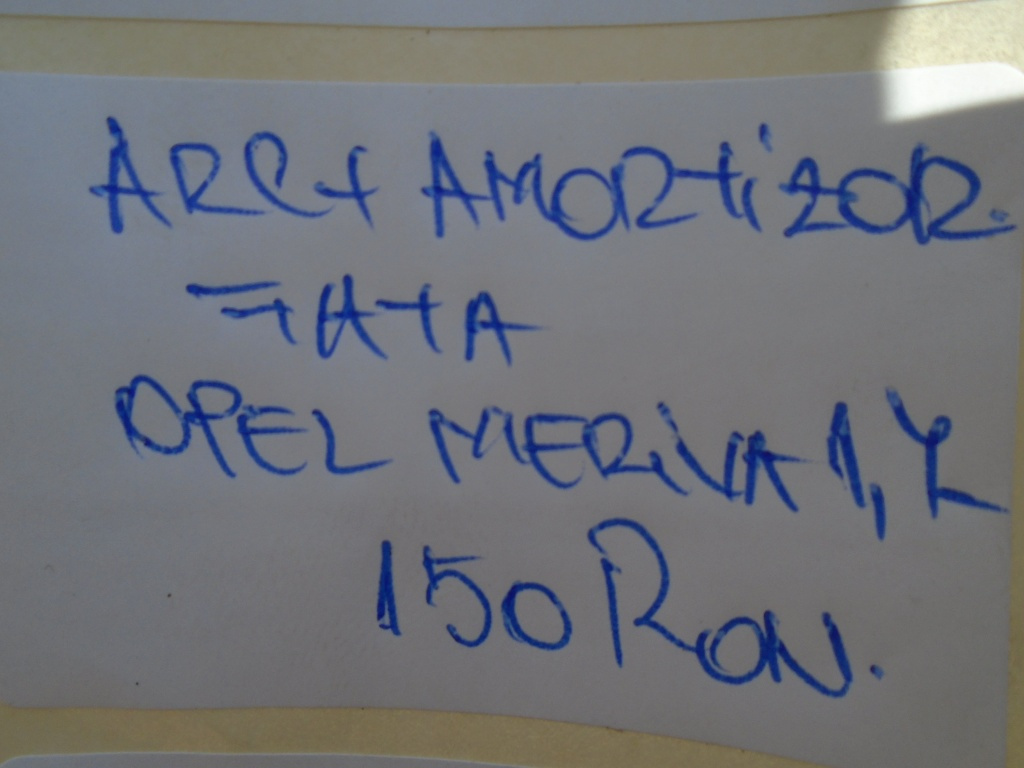 ARC+ AMORTIZOR.
FATA
OPEL MERIVA 1,7
150 RON.